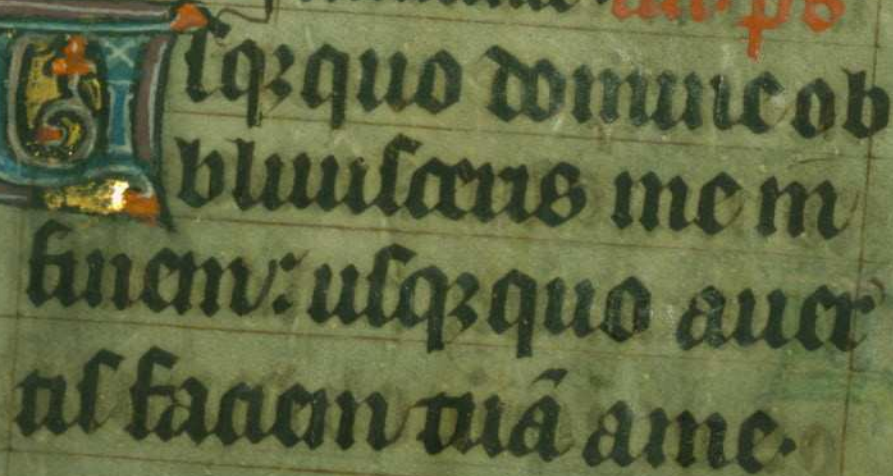 ps
Usqꝫquo domine ob
bliuisceris me in
finem: usqꝫquo auer
tis faciem tuā a me.